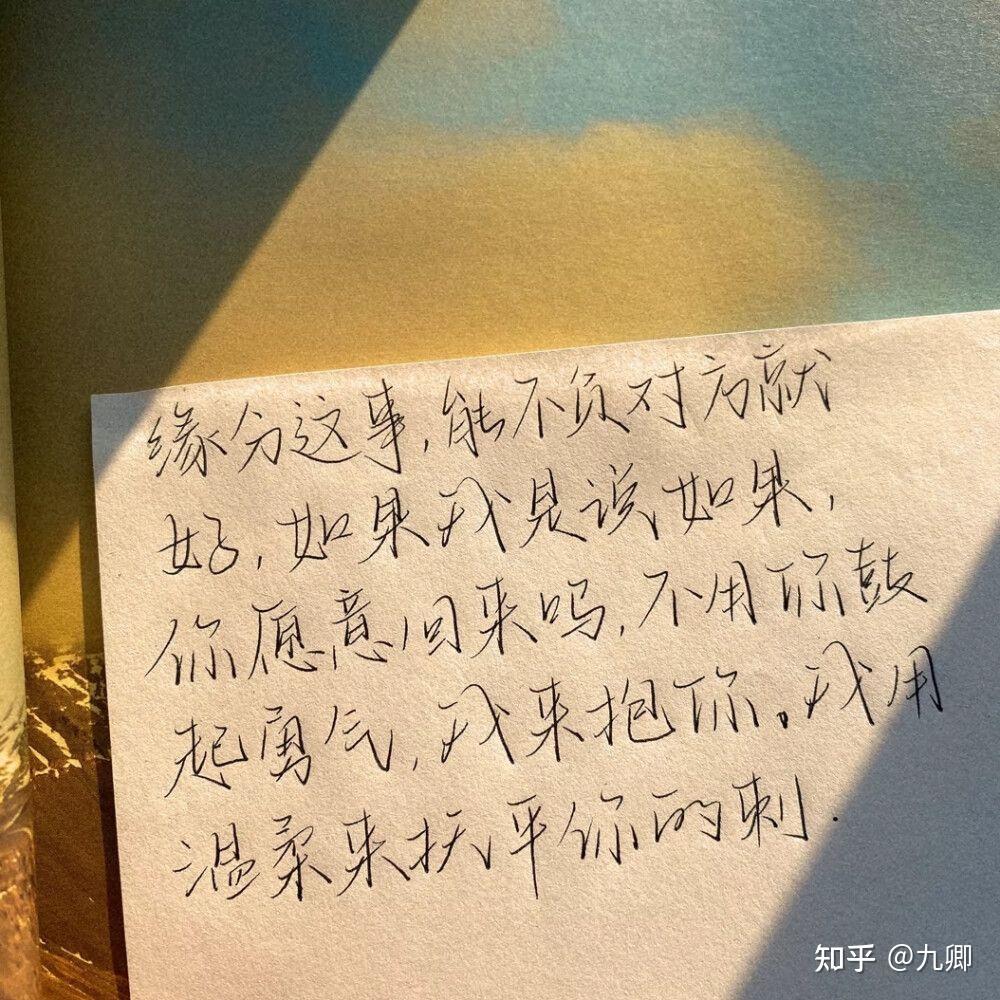 缘分这事,能不负对方就
好,如果我是说如果,
你愿意回来吗,不用你鼓
起勇气,我来抱你。我用
温柔来抚平你的刺.
知乎 @九卿